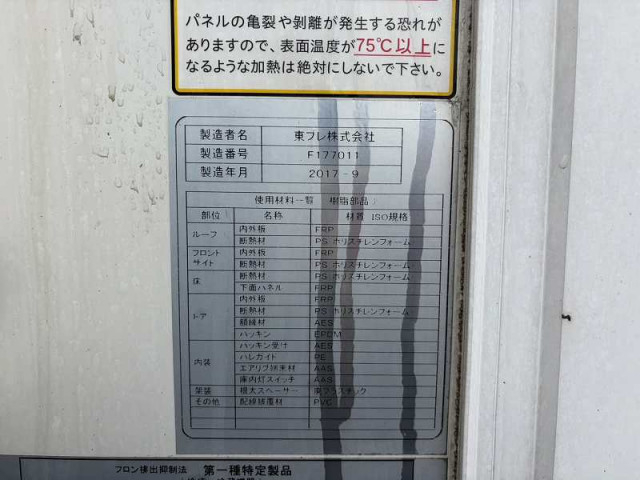 パネルの亀裂や剥離が発生する恐れが
ありますので、表面温度が75℃以上に
なるような加熱は絶対にしないで下さい。
製造者名 東フレ株式会社
製造番号 F177011
製造年月 2017-9
使用材料一覧 樹脂部品
部位 名称 材質 ISO規格
ルーフ 内外板 FRP
断熱材 PS ポリスチレンフォーム
フロント 内外板 FRP
サイド 断熱材 PS ポリスチレンフォーム
床 断熱材 PS ポリスチレンフォーム
下面パネル FRP
内外板 FRP
ドア 断熱材 PS ポリスチレンフォーム
額縁材 AES
パッキン EPDM
パッキン受け AES
内装 PE
エアリブ AAS
庫内灯スイッチ AAS
架装 根太スペーサー 再プラスチック
その他 配線被覆材 PVC
フロン排出抑制法 第一種特定製品